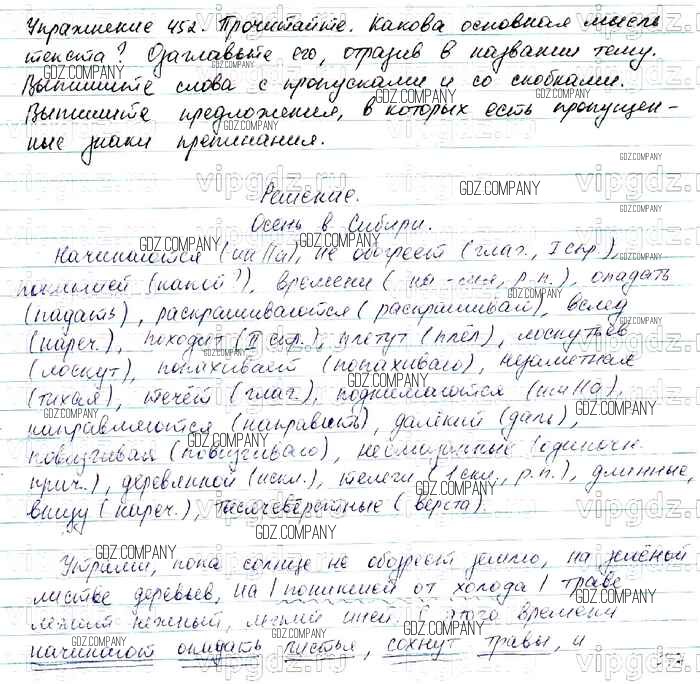 Упражнение 452. Прочитайте. Какова основная мысль
текста? Озаглавьте его, отразив в названии тему.
Выпишите слова с пропусками и со скобками.
Выпишите предложения, в которых есть пропущен-
ные знаки препинания.
Решение.
Осень в Сибири.
Начинаются (ин//а), не обогреет (глаг., I спр.),
поникшей (какой?), времени ( р.п.), опадать
(падать), раскрашиваются (раскрашивай), вслед
(нареч.), походит (II спр.), плетут (плёл), лоскутьев
(лоскут), попахивает (попахиваю), незаметная
(тихая), течёт (глаг.), поднимаются (им//а),
направляются (направить), далёкий (даль),
повизгивая (повизгиваю), несмазанные (одиночн.
прич.), деревянной (искл.), телеги (1 скл., р.п.), длинные,
внизу (нареч.), тысячевёрстные (верста).
Утрами, пока солнце не обогреет землю, на зелёной
листве деревьев, на | поникшей от холода | траве
лежит нежный, лёгкий иней. С этого времени
начинают опадать листья, сохнут травы, и
GDZ.COMPANY
vipgdz.ru